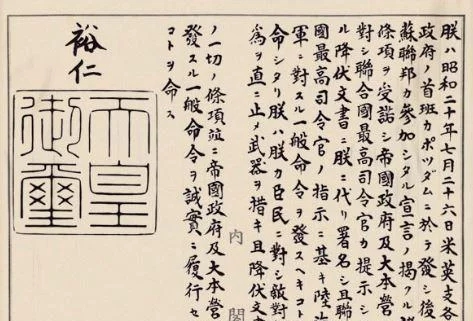 朕ハ昭和二十年七月二十六日米英支各
政府ノ首班カポツダムニ於テ發シ後
蘇聯邦カ參加シタル宣言ノ掲クル
條項ヲ受諾シ帝國政府及大本營
對シ聯合國最高司令官カ提示シ
ル降伏文書ニ朕ニ代リ署名シ且聯
國最高司令官ノ指示ニ基キ陸
軍ニ對スル一般命令ヲ發スヘキコト
命シタリ朕ハ朕カ臣民ニ對シ敵對
爲ヲ直ニ止メ武器ヲ措キ且降伏文
ノ一切ノ條項竝ニ帝國政府及大本營
發スル一般命令ヲ誠實ニ履行セ
コトヲ命ス
裕仁
天皇
御璽
内閣